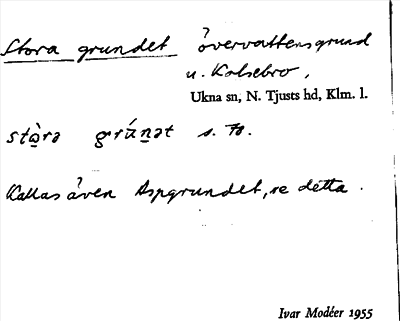 Stora grundet övervattensgrund
u. Kolsebro,
Ukna sn, N. Tjusts hd, Klm. l.
s. fo.
Kallas även Aspgrundet, se detta.
Ivar Modéer 1955